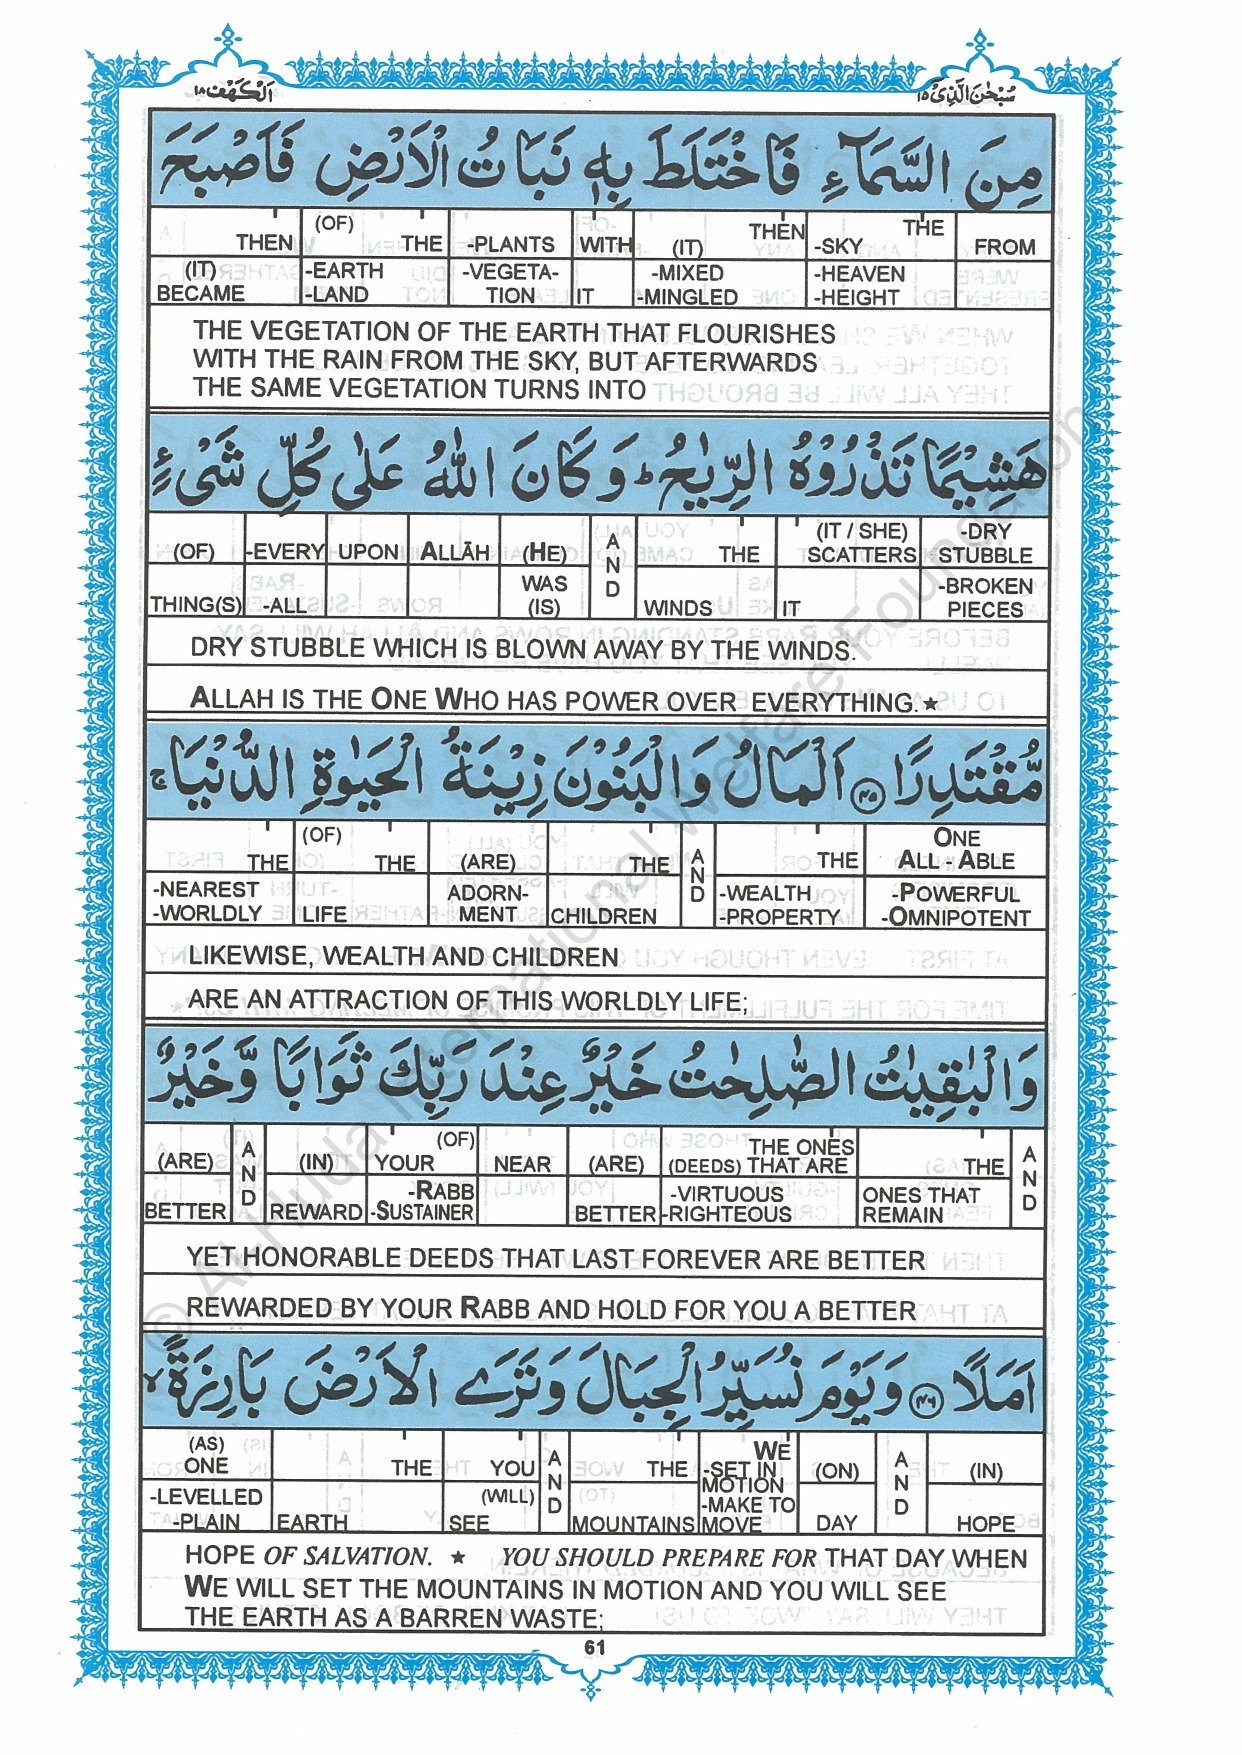 اَلْكَهْف ١٨
سُبْحٰنَ الَّذِىْۤ ١٥
مِنَ السَّمَآءِ فَاخْتَلَطَ بِهٖ نَبَاتُ الْاَرْضِ فَاَصْبَحَ
THEN (OF) THE -PLANTS WITH (IT) THEN -SKY THE FROM
(IT) BECAME -EARTH -LAND -VEGETA-TION IT -MIXED -MINGLED -HEAVEN -HEIGHT
THE VEGETATION OF THE EARTH THAT FLOURISHES
WITH THE RAIN FROM THE SKY, BUT AFTERWARDS
THE SAME VEGETATION TURNS INTO
هَشِيْمًا تَذْرُوْهُ الرِّيٰحُ ؕ وَكَانَ اللّٰهُ عَلٰى كُلِّ شَىْءٍ
(OF) -EVERY UPON ALLĀH (HE) AND THE (IT / SHE) SCATTERS -DRY STUBBLE
THING(S) -ALL WAS (IS) WINDS IT -BROKEN PIECES
DRY STUBBLE WHICH IS BLOWN AWAY BY THE WINDS.
ALLAH IS THE ONE WHO HAS POWER OVER EVERYTHING.★
مُّقْتَدِرًا ﴿٤٥﴾ اَلْمَالُ وَالْبَنُوْنَ زِيْنَةُ الْحَيٰوةِ الدُّنْيَا ۚ
THE (OF) THE (ARE) THE AND THE ONE ALL - ABLE
-NEAREST -WORLDLY LIFE ADORN-MENT CHILDREN -WEALTH -PROPERTY -POWERFUL -OMNIPOTENT
LIKEWISE, WEALTH AND CHILDREN
ARE AN ATTRACTION OF THIS WORLDLY LIFE;
وَالْبٰقِيٰتُ الصّٰلِحٰتُ خَيْرٌ عِنْدَ رَبِّكَ ثَوَابًا وَّخَيْرٌ
(ARE) AND (IN) (OF) YOUR NEAR (ARE) THE ONES (DEEDS) THAT ARE THE AND
BETTER REWARD -RABB -SUSTAINER BETTER -VIRTUOUS -RIGHTEOUS ONES THAT REMAIN
YET HONORABLE DEEDS THAT LAST FOREVER ARE BETTER
REWARDED BY YOUR RABB AND HOLD FOR YOU A BETTER
اَمَلًا ﴿٤٦﴾ وَيَوْمَ نُسَيِّرُ الْجِبَالَ وَتَرَى الْاَرْضَ بَارِزَةً ۙ
(AS) ONE THE YOU AND THE WE -SET IN MOTION (ON) AND (IN)
-LEVELLED -PLAIN EARTH (WILL) SEE MOUNTAINS -MAKE TO MOVE DAY HOPE
HOPE OF SALVATION. ★ YOU SHOULD PREPARE FOR THAT DAY WHEN
WE WILL SET THE MOUNTAINS IN MOTION AND YOU WILL SEE
THE EARTH AS A BARREN WASTE;
61
© Al-Huda International Welfare Foundation